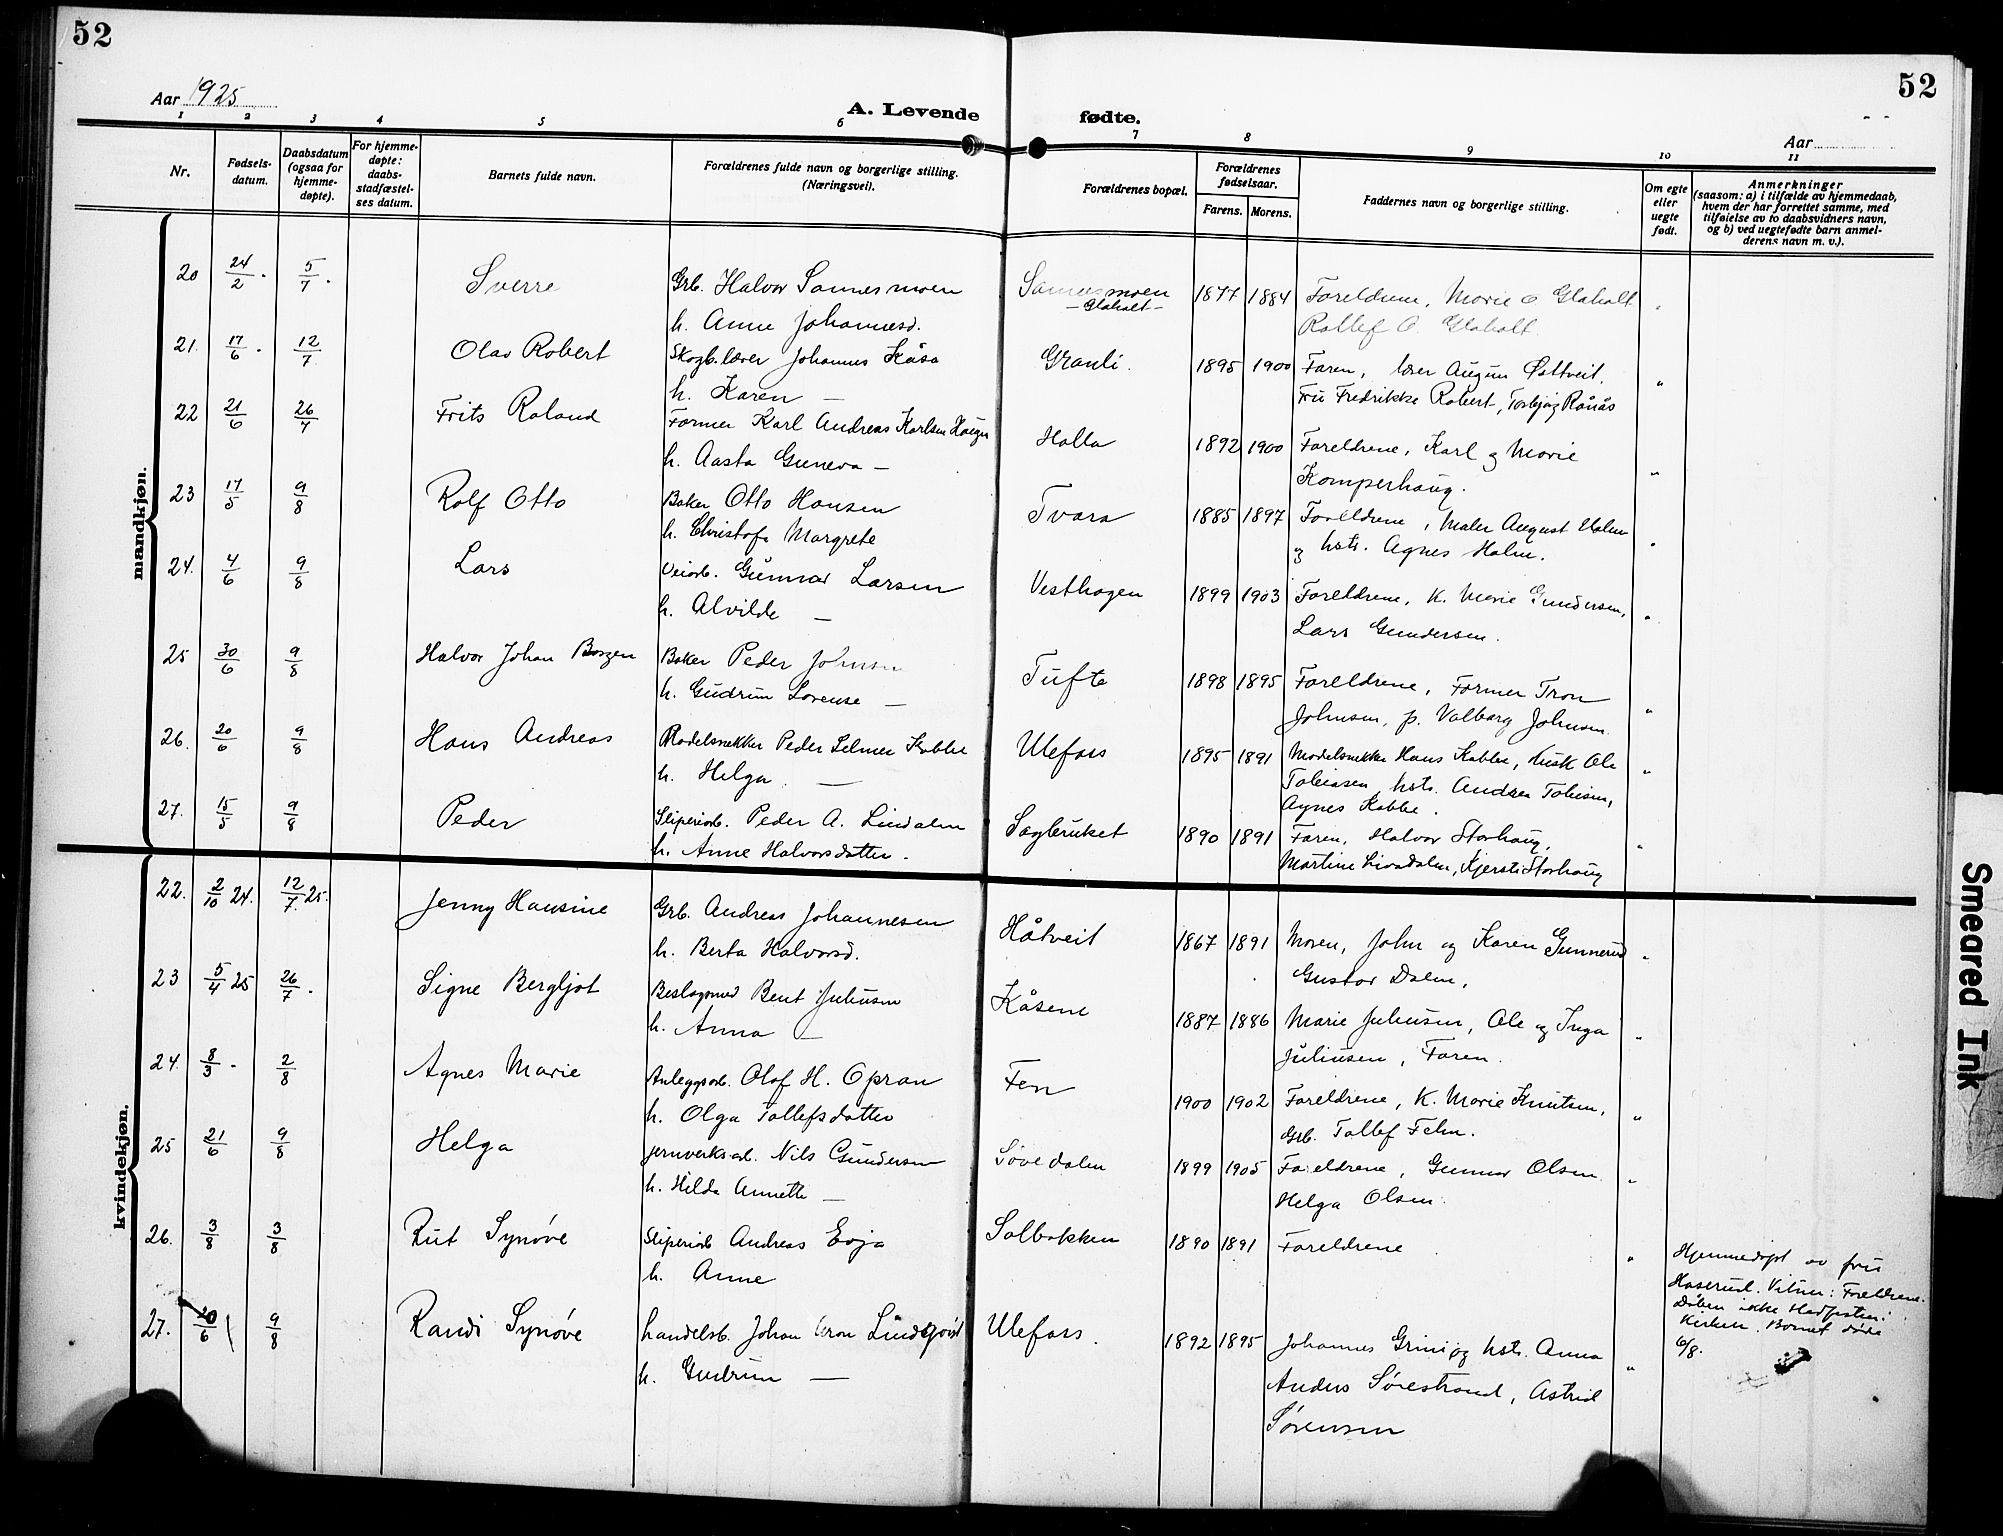 52
52
Aar 1925
A. Levende fødte.
Aar
1 2 3 4 5 6 7 8 9 10 11
Nr.
Fødsels-
datum.
Daabsdatum
(ogsaa for
hjemme-
døpte).
For hjemme-
døpte:
daabs-
stadfæstel-
ses datum.
Barnets fulde navn.
Forældrenes fulde navn og borgerlige stilling.
(Næringsvei).
Forældrenes bopæl.
Forældrenes
fødselsaar.
Farens. Morens.
Faddernes navn og borgerlige stilling.
Om egte
eller
uegte
født.
Anmerkninger
(saasom: a) i tilfælde av hjemmedaab,
hvem der har forrettet samme, med
tilføielse av to daabsvidners navn,
og b) ved uegtefødte barn anmel-
derens navn m. v.).
mandkjøn.
20 24/2 . 5/7 . Sverre Grb. Halvor Sannesmoen Sannesmoen 1877 1884 Foreldrene, Marie O Glaholt
- Glaholt -
h. Anne Johannesd. Rollef O. Glaholt
21. 17/6 . 12/7 Olav Robert Skogb.lærer Johannes Kåsa Granli. 1895 1900 Faren, lærer Østtveit, "
h. Karen — Fru Fredrikke Robert, Torbjøg Rånås
22 21/6 26/7 Frits Roland Former Karl Andreas Karlsen Holla 1892 1900 Foreldrene, Karl og Marie "
h. Aasta Guneva — Komperhaug.
23 17/5 9/8 Rolf Otto Baker Otto Hansen Tvara 1885 1897 Foreldrene, Maler August Holm "
h. Christofa Margrete og hstr. Agnes Holm.
24. 4/6 9/8 Lars Veiarb. Gunnar Larsen Vesthagen 1899 1903 Foreldrene, K. Marie Gundersen, "
h. Alvilde — Lars Gundersen.
25 30/6 9/8 Halvor Johan Borgen Baker Peder Johnsen Tufte 1898 1895 Foreldrene, Former Tron "
h. Gudrun Lorense — Johnsen, p. Valborg Johnsen.
26. 20/6 9/8 Hans Andreas Modelsnekker Peder Selmer Kabbe Ulefoss 1895 1891 Modelsnekker Hans Kabbe, kusk Ole "
h. Helga. — Tobiasen, hstr. Andrea Tobisen,
Agnes Kabbe.
27. 15/5 9/8 Peder Sliperiarb. Peder A. Lindalen Sagbruket 1890 1891 Faren, Halvor Storhaug, "
h. Anne Halvorsdatter. Martine Lindalen, Kjersti Storhaug
kvindekjøn.
22. 2/10 24. 12/7 25. Jenny Hansine Grb. Andreas Johannesen Håtveit 1867 1891 Moren, John og Karen Gunnerud "
h. Berta Halvorsd. Gustav Dalen.
23 5/4 25 26/7 . Signe Bergljot Beslagsmed Bent Juliusen Kåsene 1887 1886 Marie Juliusen, Ole og Inga "
h. Anna — Juliusen, Faren.
24. 8/3 . 2/8 Agnes Marie Anleggsarb. Olaf H. Opran Fen 1900 1902 Foreldrene, K. Marie Knutsen, "
h. Olga Tollefsdatter Grb. Tollef Fehn.
25 21/6 9/8 Helga Jernverksarb. Nils Gundersen Søvedalen 1899 1905 Foreldrene, Gunnar Olsen "
h. Hilda Annette — Helga Olsen.
26. 3/8 3/8 Rut Synøve Sliperiarb Andreas Evja Solbakken 1890 1891 Foreldrene " Hjemmedøpt av fru
h. Anne Haserud. Vitner: Foreldrene.
Dåben ikke stadfestet i
Kirken. Barnet døde
6/8.
27. 20/6 9/8 Randi Synøve Handelsb. Johan Aron Lindqvist Ulefoss. 1892 1895 Johannes Grini og hstr. Anna "
h. Gudrun — Anders Sørestrand, Astrid
Sørensen
Smeared Ink